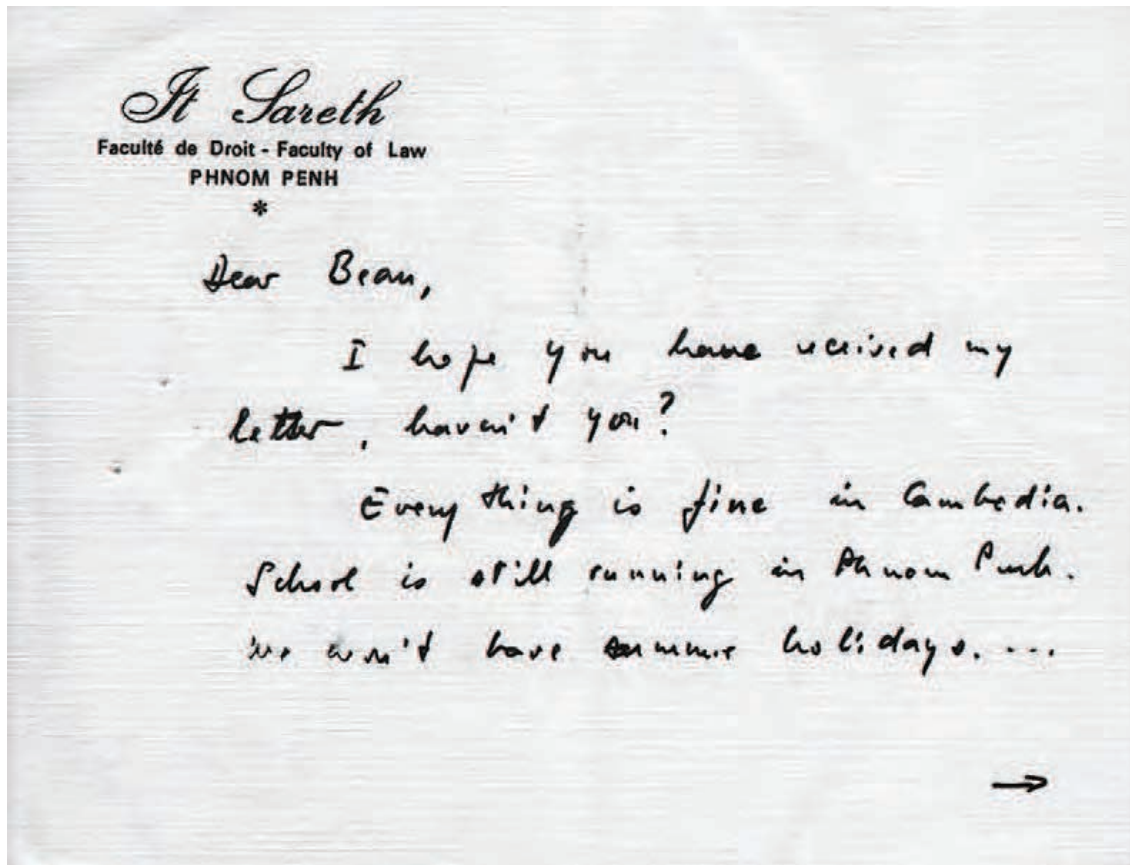 It Sareth
Faculté de Droit - Faculty of Law
PHNOM PENH
*
Dear Bean,
I hope you have received my
letter, haven't you?
Every thing is fine in Cambodia.
School is still running in Phnom Penh.
We won't have summer holidays. ...
→